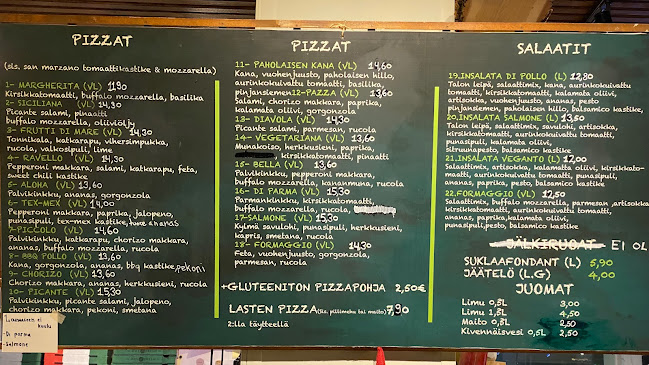 PIZZAT
(sis. san marzano tomaattikastike & mozzarella)
1- MARGHERITA (VL) 11,90
Kirsikkatomaatti, buffalo mozzarella, basilika
2- SICILIANA (VL) 14,30
Picante salami, pinaatti
buffalo mozzarella, oliiviöljy
3- FRUTTI DI MARE (VL) 14,30
Tonnikala, katkarapu, vihersimpukka,
rucola, valkosipuli, lime
4- RAVELLO (VL) 14,30
Pepperoni makkara, salami, katkarapu, feta,
sweet chili kastike
5- ALOHA (VL) 13,60
Palvikinkku, ananas, gorgonzola
6- TEX-MEX (VL) 14,00
Pepperoni makkara, paprika, jalopeno,
punasipuli, tex-mex kastike, tuore ananas
7-PICCOLO (VL) 14,60
Palvikinkku, katkarapu, chorizo makkara,
ananas, buffalo mozzarella, rucola
8- BBQ POLLO (VL) 13,60
Kana, gorgonzola, ananas, bbq kastike, pekoni
9- CHORIZO (VL) 13,60
Chorizo makkara, ananas, herkkusieni, rucola
10- PICANTE (VL) 15,30
Palvikinkku, picante salami, jalopeno,
chorizo makkara, pekoni, smetana
-Di parma
-Salmone
PIZZAT
11- PAHOLAISEN KANA (VL) 14,60
Kana, vuohenjuusto, paholaisen hillo,
aurinkokuivattu tomaatti, basilika,
pinjansiemen 12-PAZZA (VL) 13,60
Salami, chorizo makkara, paprika,
kalamata oliivi, smetana
13- DIAVOLA (VL) 14,30
Picante salami, parmesan, rucola
14- VEGETARIANA (VL) 13,60
Munakoiso, herkkusieni, paprika,
kirsikkatomaatti, pinaatti
15- BELLA (VL) 13,60
Palvikinkku, pepperoni makkara,
buffalo mozzarella, kananmuna, rucola
16- DI PARMA (VL) 15,30
Parmankinkku, kirsikkatomaatti,
buffalo mozzarella, rucola,
17-SALMONE (VL) 15,30
Kylmä savulohi, punasipuli, herkkusieni,
kapris, smetana, rucola
18- FORMAGGIO (VL) 14,30
Feta, vuohenjuusto, gorgonzola,
parmesan, rucola
+GLUTEENITON PIZZAPOHJA 2,50€
LASTEN PIZZA (sis. pillimehu tai maito) 7,90
2:lla täytteellä
SALAATIT
19.INSALATA DI POLLO (L) 12,80
Talon leipä, salaattimix, kana, aurinkokuivattu
tomaatti, kirsikkatomaatti, kalamata oliivi,
artisokka, vuohenjuusto, ananas, pesto
pinjansiemen, paholaisen hillo, balsamico kastike
20.INSALATA SALMONE (L) 13,50
Talon leipä, salaattimix, savulohi, artisokka,
kirsikkatomaatti, aurinkokuivattu tomaatti,
punasipuli, kalamata oliivi,
sitruunapesto, balsamico kastike
21.INSALATA VEGANTO (L) 12,00
Salaattimix, artisokka, kalamata oliivi, kirsikka-
tomaatti, aurinkokuivattu tomaatti, punasipuli,
ananas, paprika, pesto, balsamico kastike
22.FORMAGGIO (VL) 12,50
Salaattimix, buffalo mozzarella, parmesan, artisokka,
kirsikkatomaatti, aurinkokuivattu tomaatti,
ananas, paprika, kalamata oliivi,
punasipuli, pesto, balsamico kastike
JÄLKIRUOAT EI OL
SUKLAAFONDANT (L) 5,90
JÄÄTELÖ (L.G) 4,00
JUOMAT
Limu 0,5L 3,00
Limu 1,5L 4,50
Maito 0,5L 2,50
Kivennäisvesi 0,5L 2,50